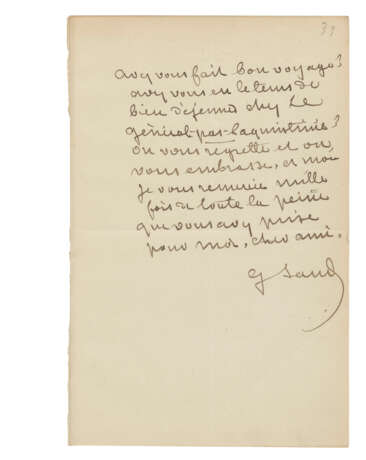 39
avez vous fait bon voyage?
avez vous eu le tems de
bien déjeuner chez le
général-pas-
on vous regrette et on
vous embrasse, et moi
je vous remercie mille
fois de toute la peine
que vous avez prise
pour moi, cher ami.
G Sand